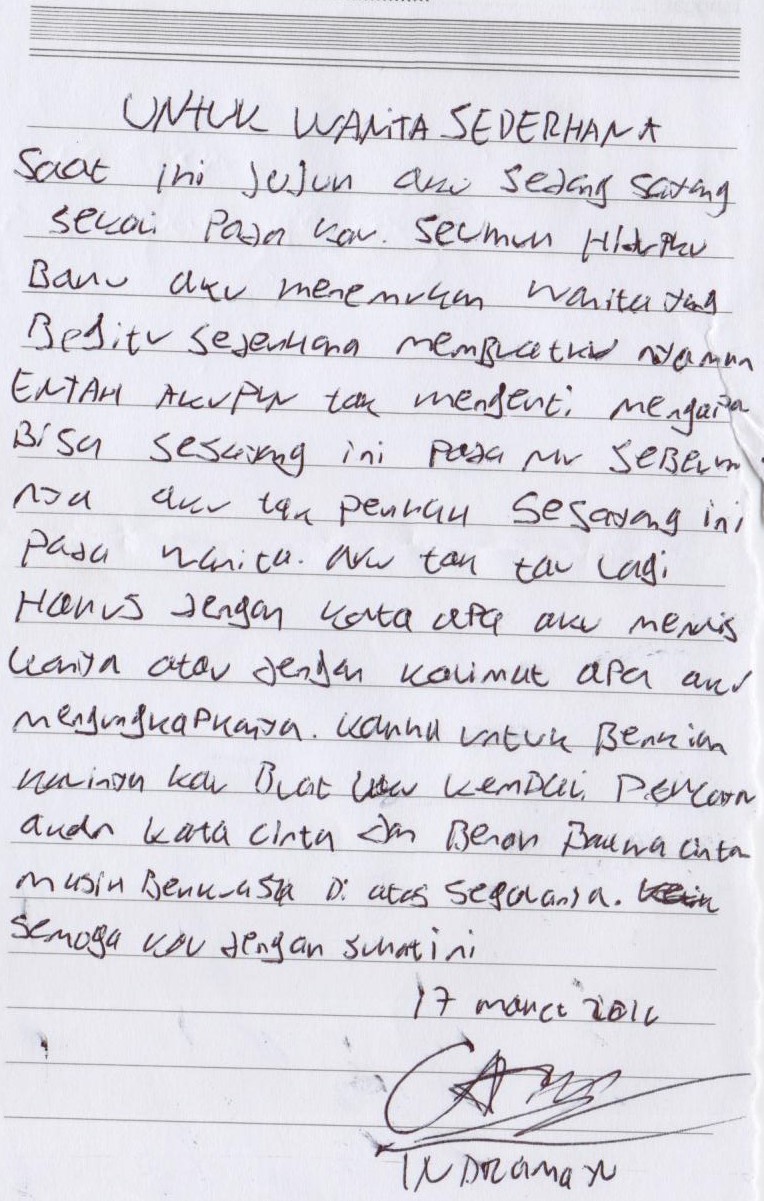 UNTUK WANITA SEDERHANA
Saat ini jujur aku sedang sayang
sekali pada kau. seumur Hidupku
Baru aku menemukan wanita yang
Begitu sederhana membuatku nyaman
ENTAH AKUPUN tak mengerti mengapa
Bisa sesayang ini pada mu SEBELUM
nya aku tak pernah sesayang ini
pada wanita. aku tak tau lagi
Harus dengan kata apa aku menulis
kanya atau dengan kalimat apa aku
mengungkapkanya. karna untuk
kalinya kau Buat aku kembali percaya
kata cinta dan Benar Bahwa cinta
masih Berkuasa Di atas segalanya.
semoga kau dengan surat ini
17 maret
INDRAMAYU